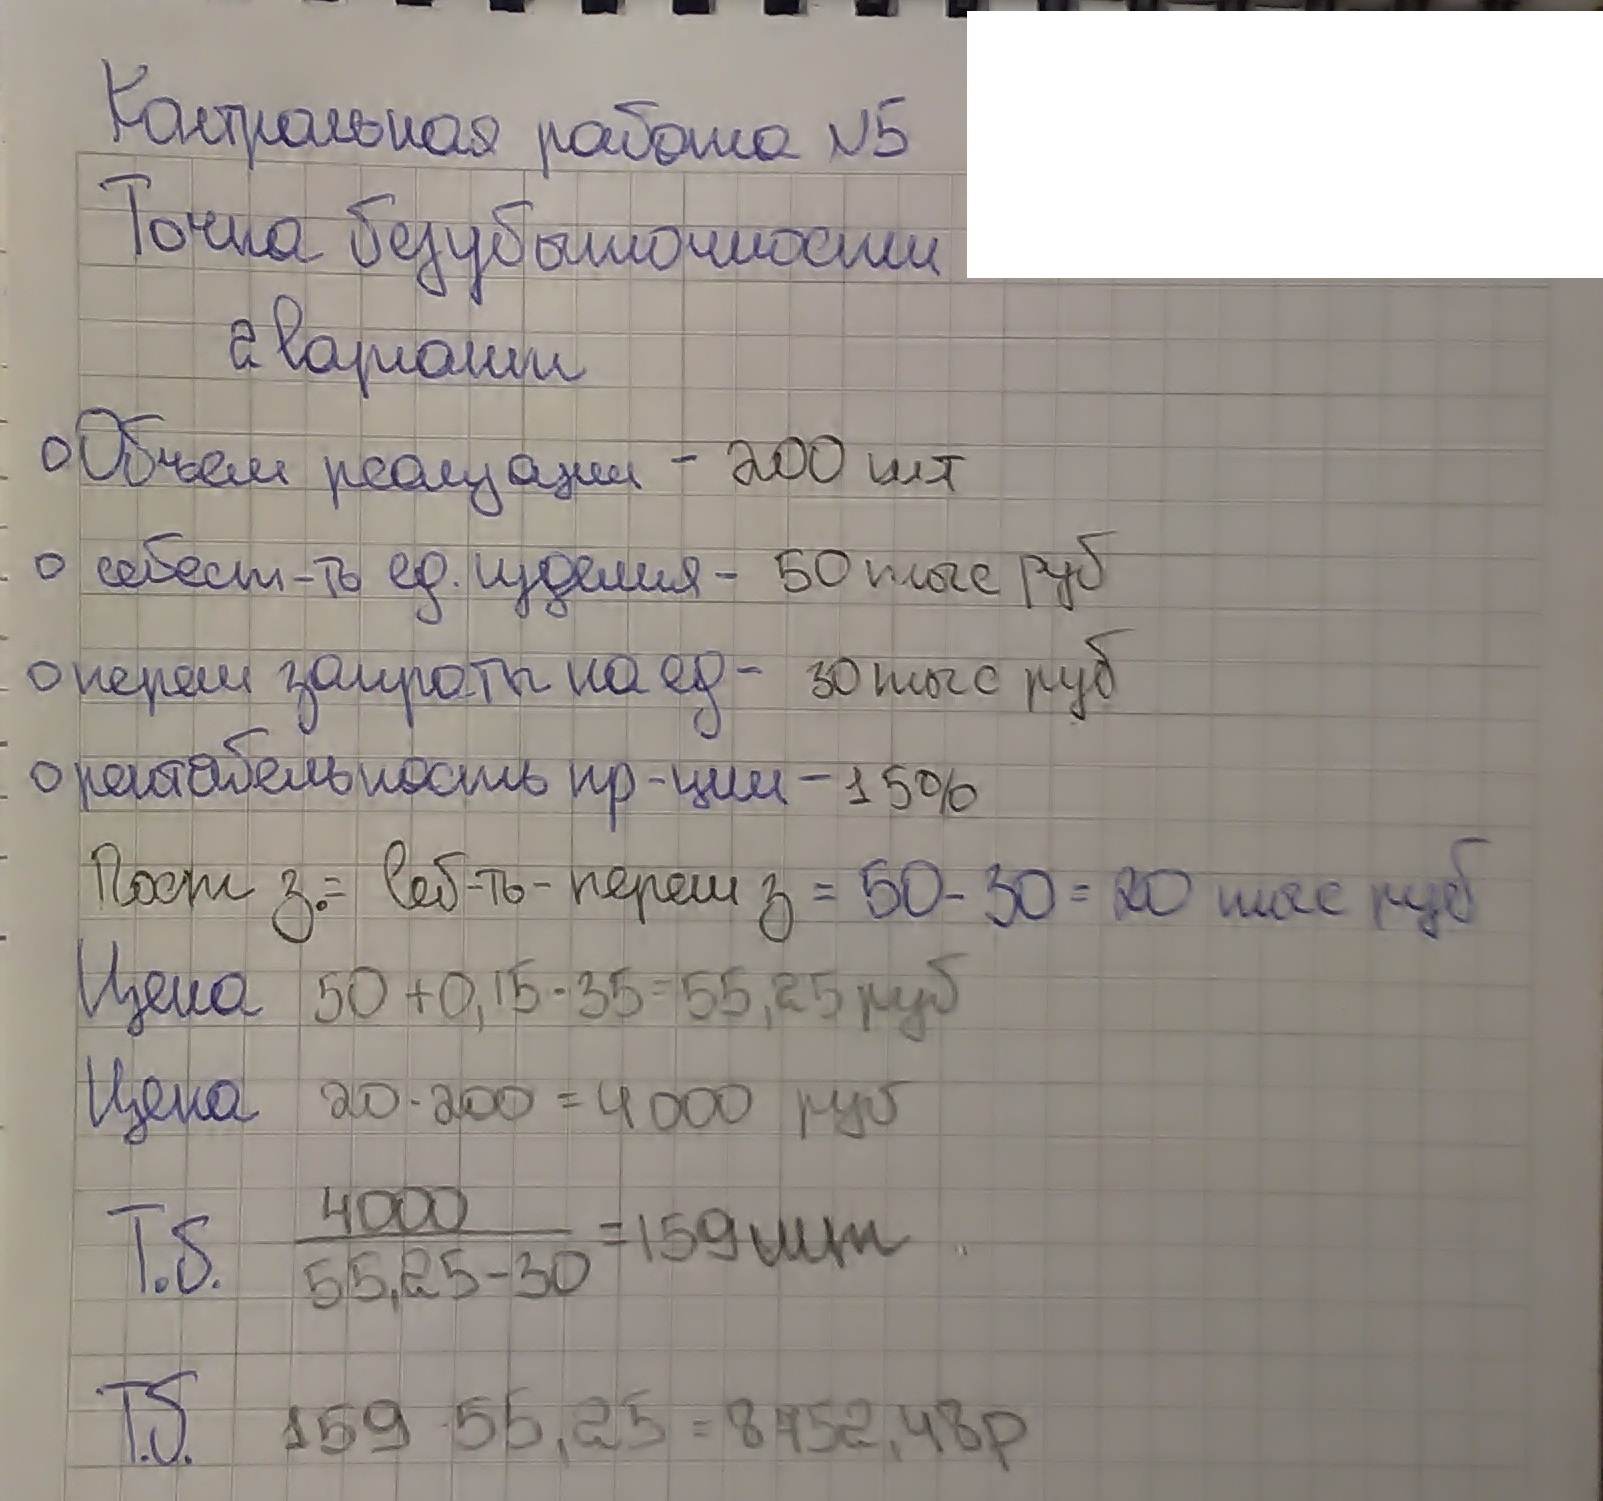 Контрольная работа №5
Точка безубыточности
2 вариант
о Объем реализации - 200 шт
о себест-ть ед. изделия - 50 тыс руб
о перем затраты на ед - 30 тыс руб
о рентабельность пр-ции - 15%
Пост з. = Себ-ть - перем з = 50 - 30 = 20 тыс руб
Цена 50 + 0,15 · 35 = 55,25 руб
Цена 20 · 200 = 4000 руб
Т.б. 4000
55,25 - 30 = 159 шт
Т.б. 159 · 55,25 = 8752,48р